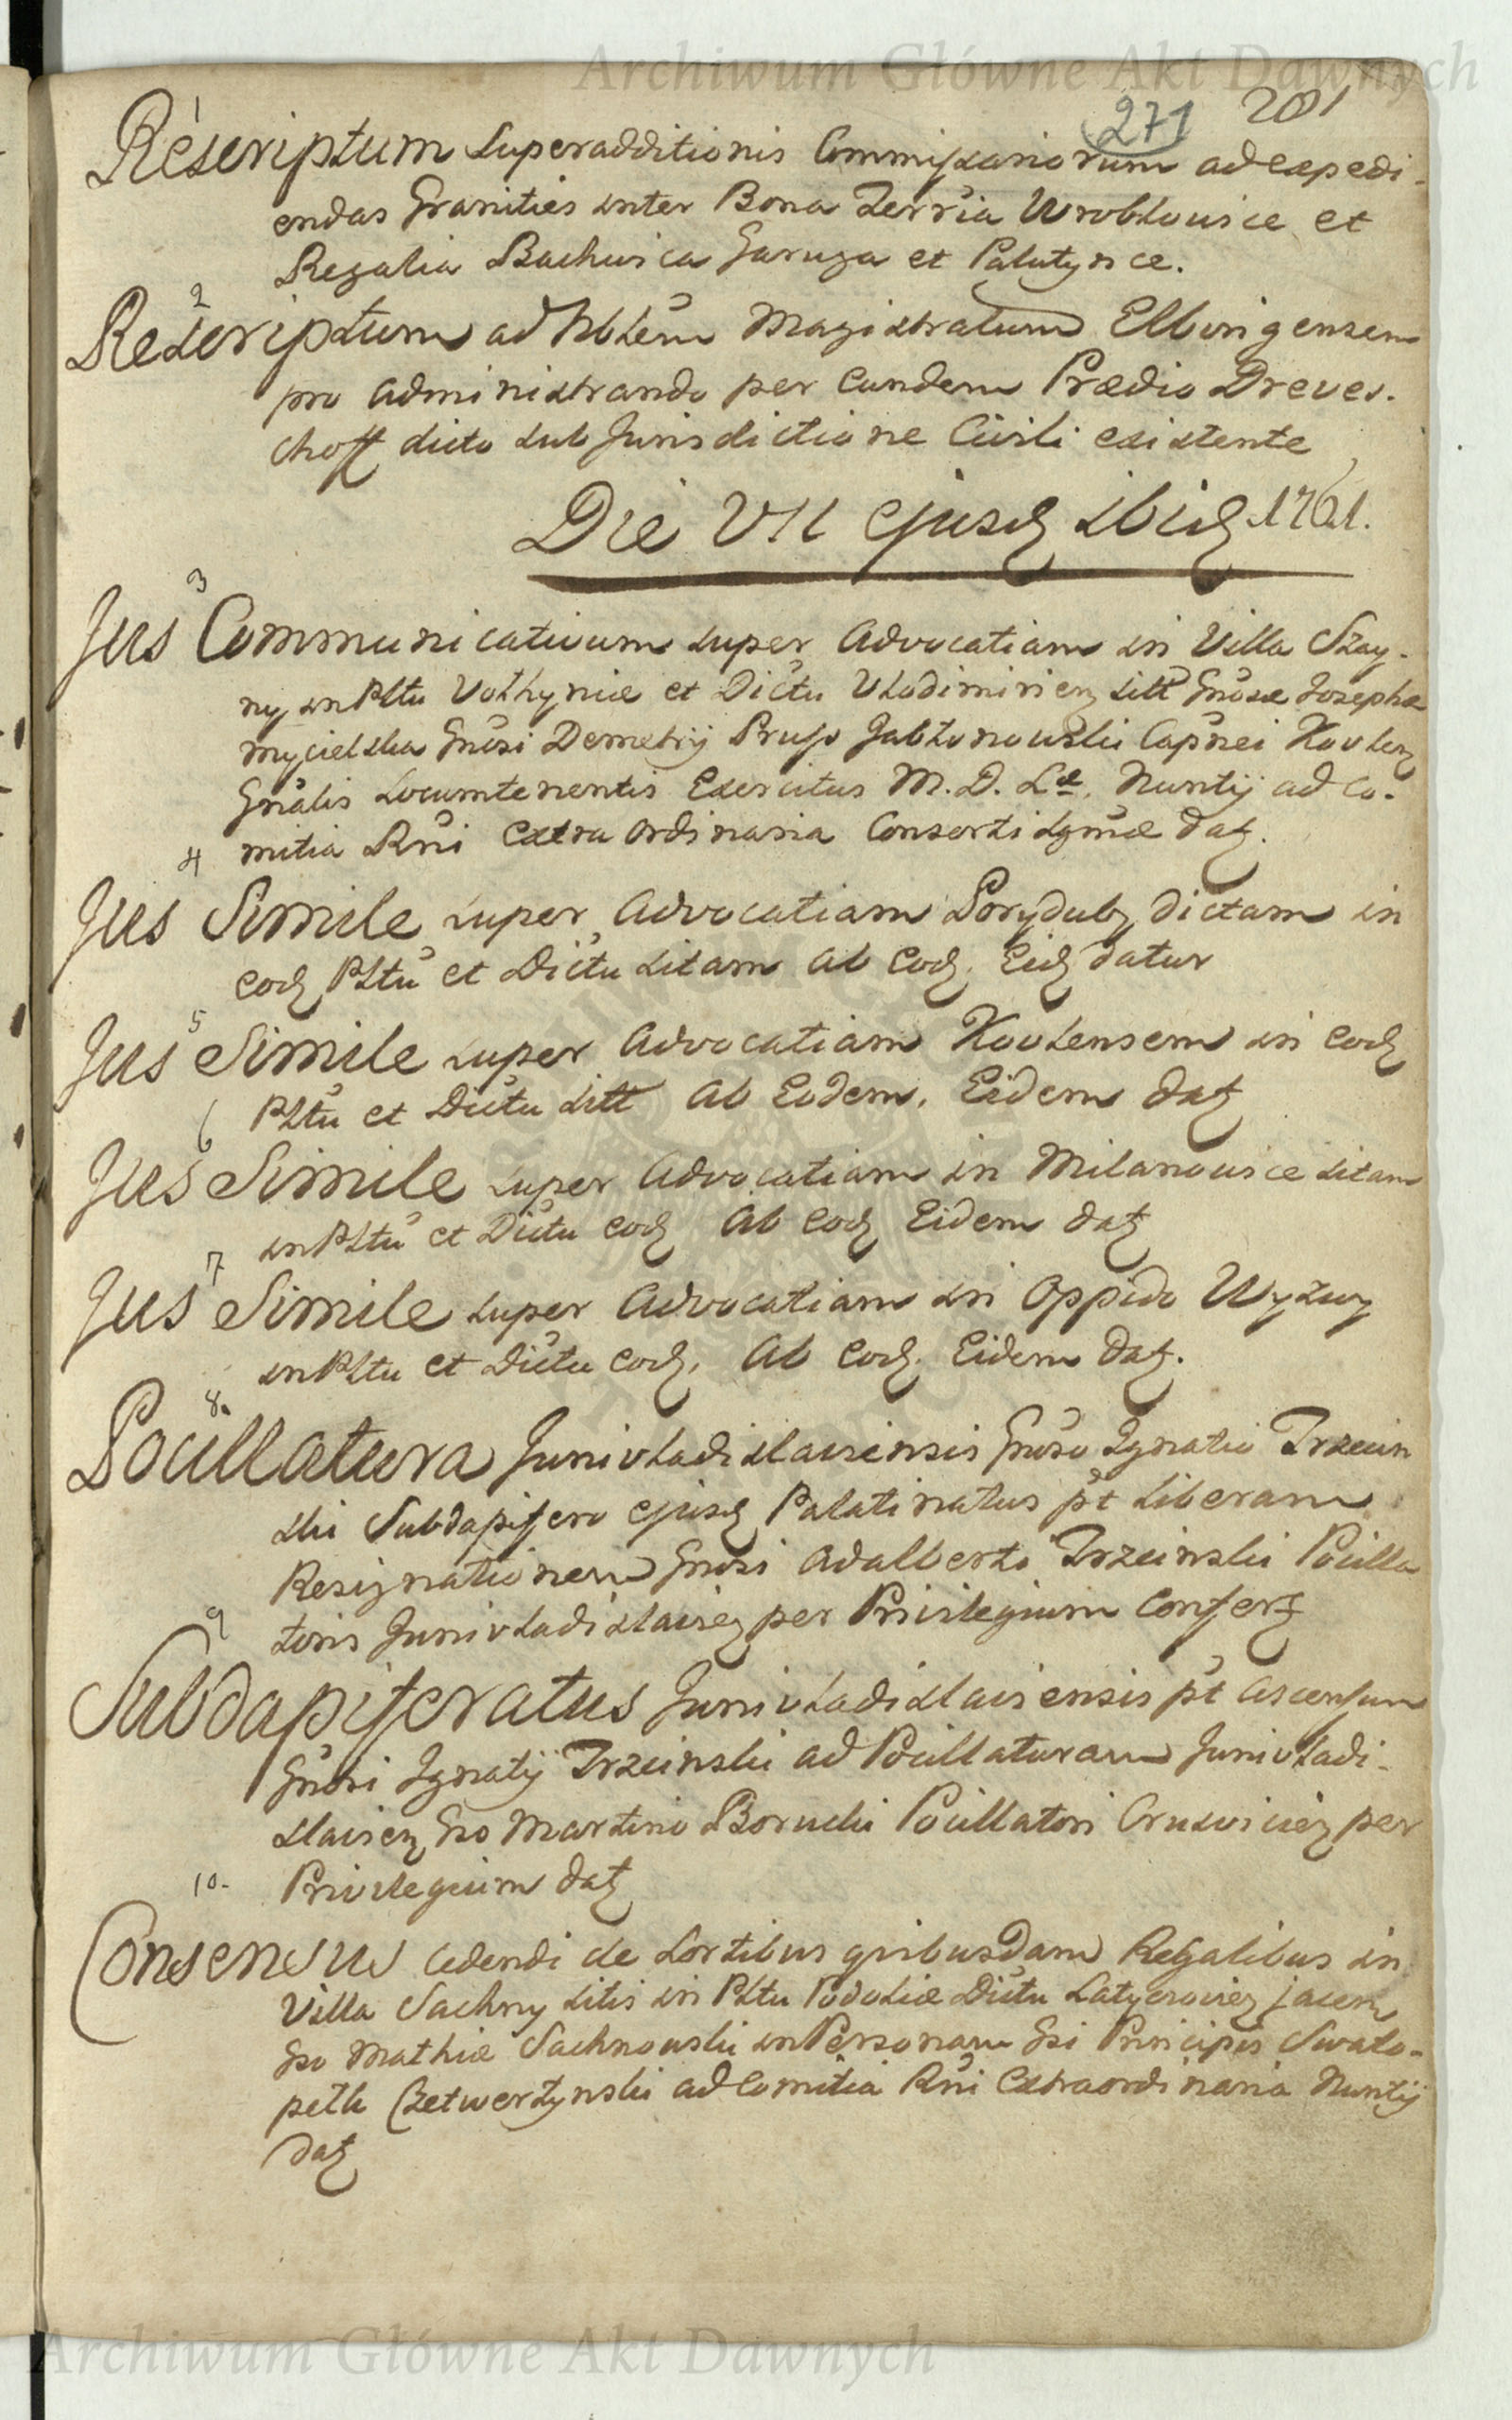 Archiwum Główne Akt Dawnych
271 281
1
Rescriptum Superadditionis Commissariorum ad expedi-
endas Granities inter Bona Terria Wroblowice et
Regalia Bachwica Jaruga et Palutynce.
2
Rescriptum ad Nblem Magistratum Elbingensem
pro administrando per Eundem Prædio Dreves-
choff dicto sub Jurisdictione Civili existente
Die VII ejusd ibid 1761.
3
Jus Communicativum super Advocatiam in Villa Szay-
ny in Pltu Volhyniæ et Dictu Vlodimirien sitt Gnosæ Josephæ
Mycielska Gnosi Demetrij Prusso Jabłonowski Capnei Kovlen
Gnalis Locumtenentis Exercitus M. D. L. Nuntij ad Co-
mitia Rni Extra Ordinaria Consorti Lgmæ datt.
4
Jus Simile super Advocatiam Poryduby dictam in
eod Pltu et Dictu sitam ab Eod. Eid datur
5
Jus Simile super Advocatiam Kovlensem in eod
Pltu et Dictu sitt ab Eodem. Eidem datt
6
Jus Simile super Advocatiam in Milanowice sitam
in Pltu et Dictu eod ab eod Eidem datt
7
Jus Simile super Advocatiam in Oppido Wyzwy
in Pltu et Dictu eod. ab eod. Eidem datt.
8.
Pocillatura Junivladislaviensis Gnoso Ignatio Trzcin
ski Subdapifero ejusd Palatinatus pt Liberam
Resignationem Gnosi Adalberti Trzcinski Pocilla
toris Junivladislavien per Privilegium Confert
9
Subdapiferatus Junivladislaviensis pt ascensum
Gnosi Ignatij Trzcinski ad Pocillaturam Junivladi-
slavien Gso Martino Borucki Pocillatori Crusvicien per
Privilegium datt
10.
Consensus cedendi de Sortibus quibusdam Regalibus in
Villa Sachny sitis in Pltu Podoliæ Dictu Latyczovien jacen
Gso Mathiæ Sachnowski in Personam Gsi Principis Swato-
pelk Czetwertynski ad Comitia Rni Extraordinaria Nuntij
datt
Archiwum Główne Akt Dawnych